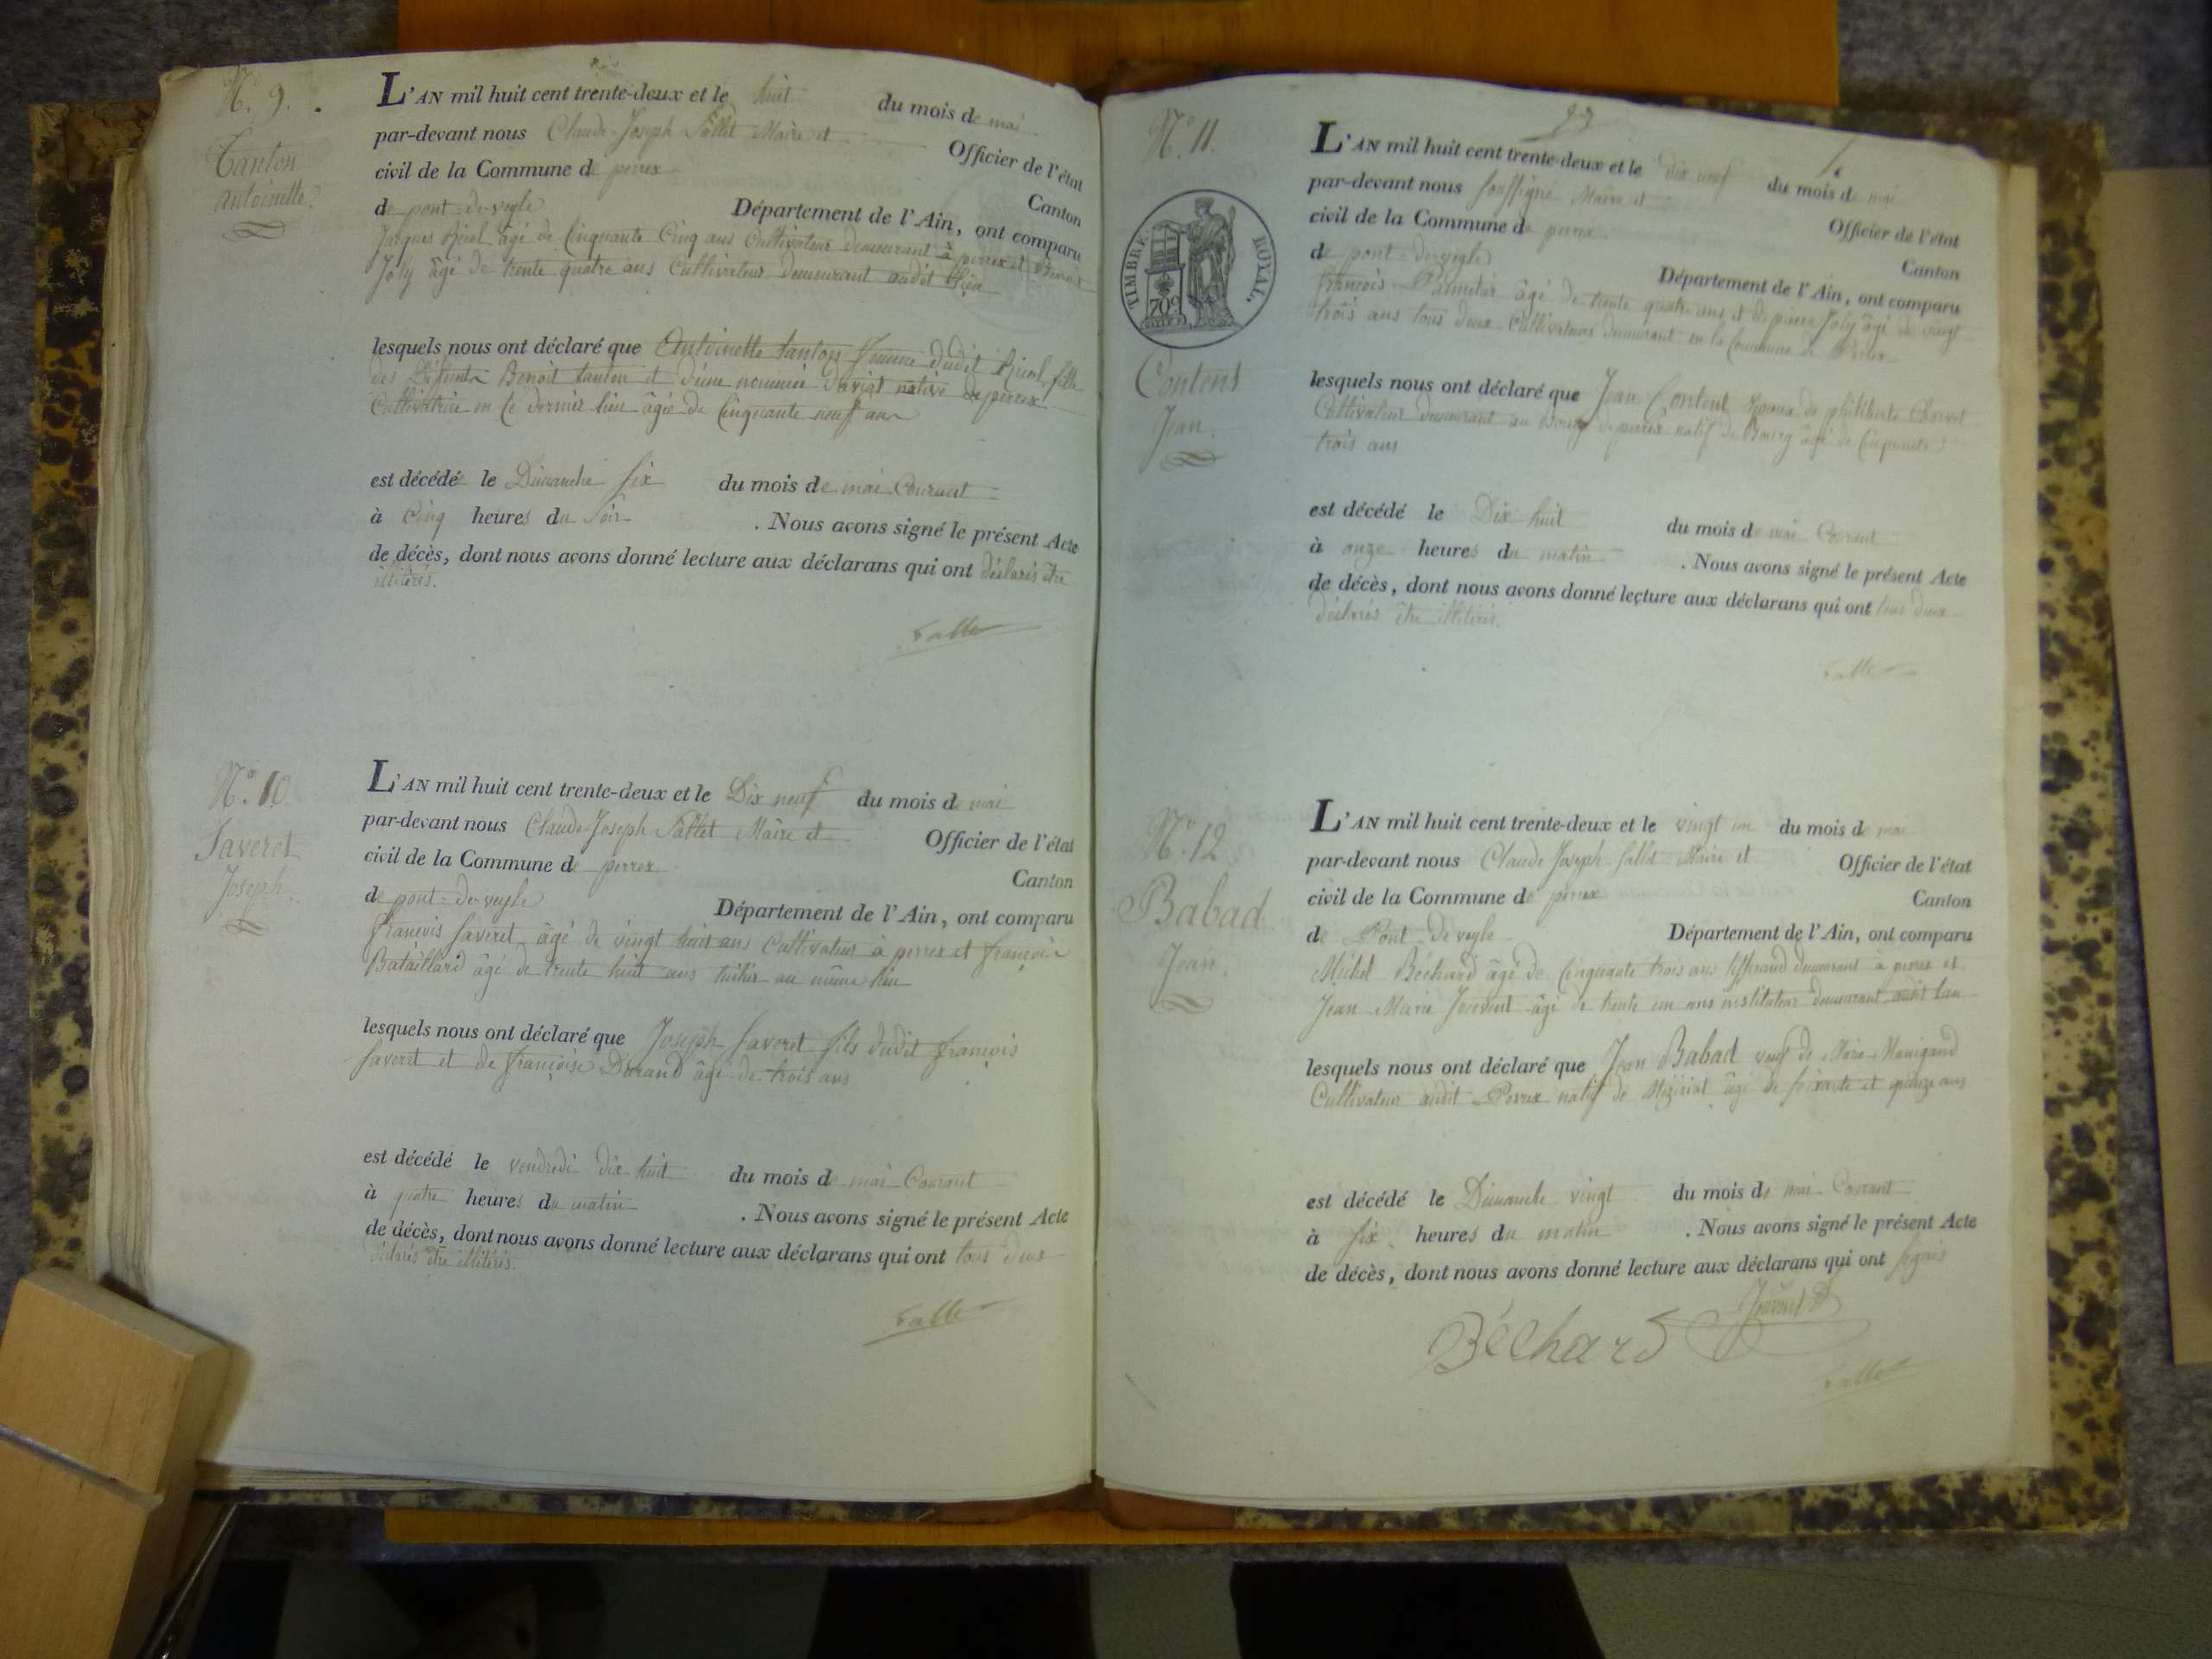 N.° 9.
Tanton
antoinette.
L'AN mil huit cent trente-deux et le huit du mois de mai
par-devant nous Claude-Joseph Sallet Maire et Officier de l'état
civil de la Commune de perrex Canton
de pont-de-veyle Département de l'Ain, ont comparu
Jacques âgé de Cinquante Cinq ans Cultivateur demeurant à perrex et Benoit
Joly âgé de trente quatre ans Cultivateur demeurant audit lieu
lesquels nous ont déclaré que Antoinette tanton femme dudit fille
des défunts Benoit tanton et d'une nommée native de perrex
Cultivatrice en ce dernier lieu âgée de Cinquante neuf ans
est décédée le Dimanche six du mois de mai Courant
à Cinq heures du Soir . Nous avons signé le présent Acte
de décès, dont nous avons donné lecture aux déclarans qui ont déclarés être
illitérés.
N.° 10.
Saveret
Joseph.
L'AN mil huit cent trente-deux et le Dix neuf du mois de mai
par-devant nous Claude-Joseph Sallet Maire et Officier de l'état
civil de la Commune de perrex Canton
de pont-de-veyle Département de l'Ain, ont comparu
françois Saveret âgé de vingt huit ans Cultivateur à perrex et françois
Bataillard âgé de trente huit ans au même lieu
lesquels nous ont déclaré que Joseph Saveret fils dudit françois
Saveret et de françoise Durand âgé de trois ans
est décédé le vendredi dix huit du mois de mai Courant
à quatre heures du matin . Nous avons signé le présent Acte
de décès, dont nous avons donné lecture aux déclarans qui ont tous deux
déclarés être illitérés.
93
N.° 11.
TIMBRE ROYAL.
70c
Contens
Jean.
L'AN mil huit cent trente-deux et le dix neuf du mois de mai
par-devant nous soussigné Maire et Officier de l'état
civil de la Commune de perrex Canton
de pont-de-veyle Département de l'Ain, ont comparu
françois âgé de trente quatre ans et de pierre Joly âgé de vingt
trois ans tous deux Cultivateurs demeurant en la Commune de Perrex
lesquels nous ont déclaré que Jean Contens Epoux de philiberte
Cultivateur demeurant au Bourg de perrex natif de Bourg âgé de Cinquante
trois ans
est décédé le Dix huit du mois de mai Courant
à onze heures du matin . Nous avons signé le présent Acte
de décès, dont nous avons donné lecture aux déclarans qui ont tous deux
déclarés être illitérés.
N.° 12
Babad
Jean.
L'AN mil huit cent trente-deux et le vingt un du mois de mai
par-devant nous Claude Joseph Sallet Maire et Officier de l'état
civil de la Commune de perrex Canton
de Pont de veyle Département de l'Ain, ont comparu
Michel Béchard âgé de Cinquante trois ans demeurant à perrex et
Jean Marie âgé de trente un ans instituteur demeurant audit lieu
lesquels nous ont déclaré que Jean Babad veuf de
Cultivateur audit Perrex natif de Mézériat âgé de soixante et quinze ans
est décédé le Dimanche vingt du mois de mai Courant
à six heures du matin . Nous avons signé le présent Acte
de décès, dont nous avons donné lecture aux déclarans qui ont signés
Béchard